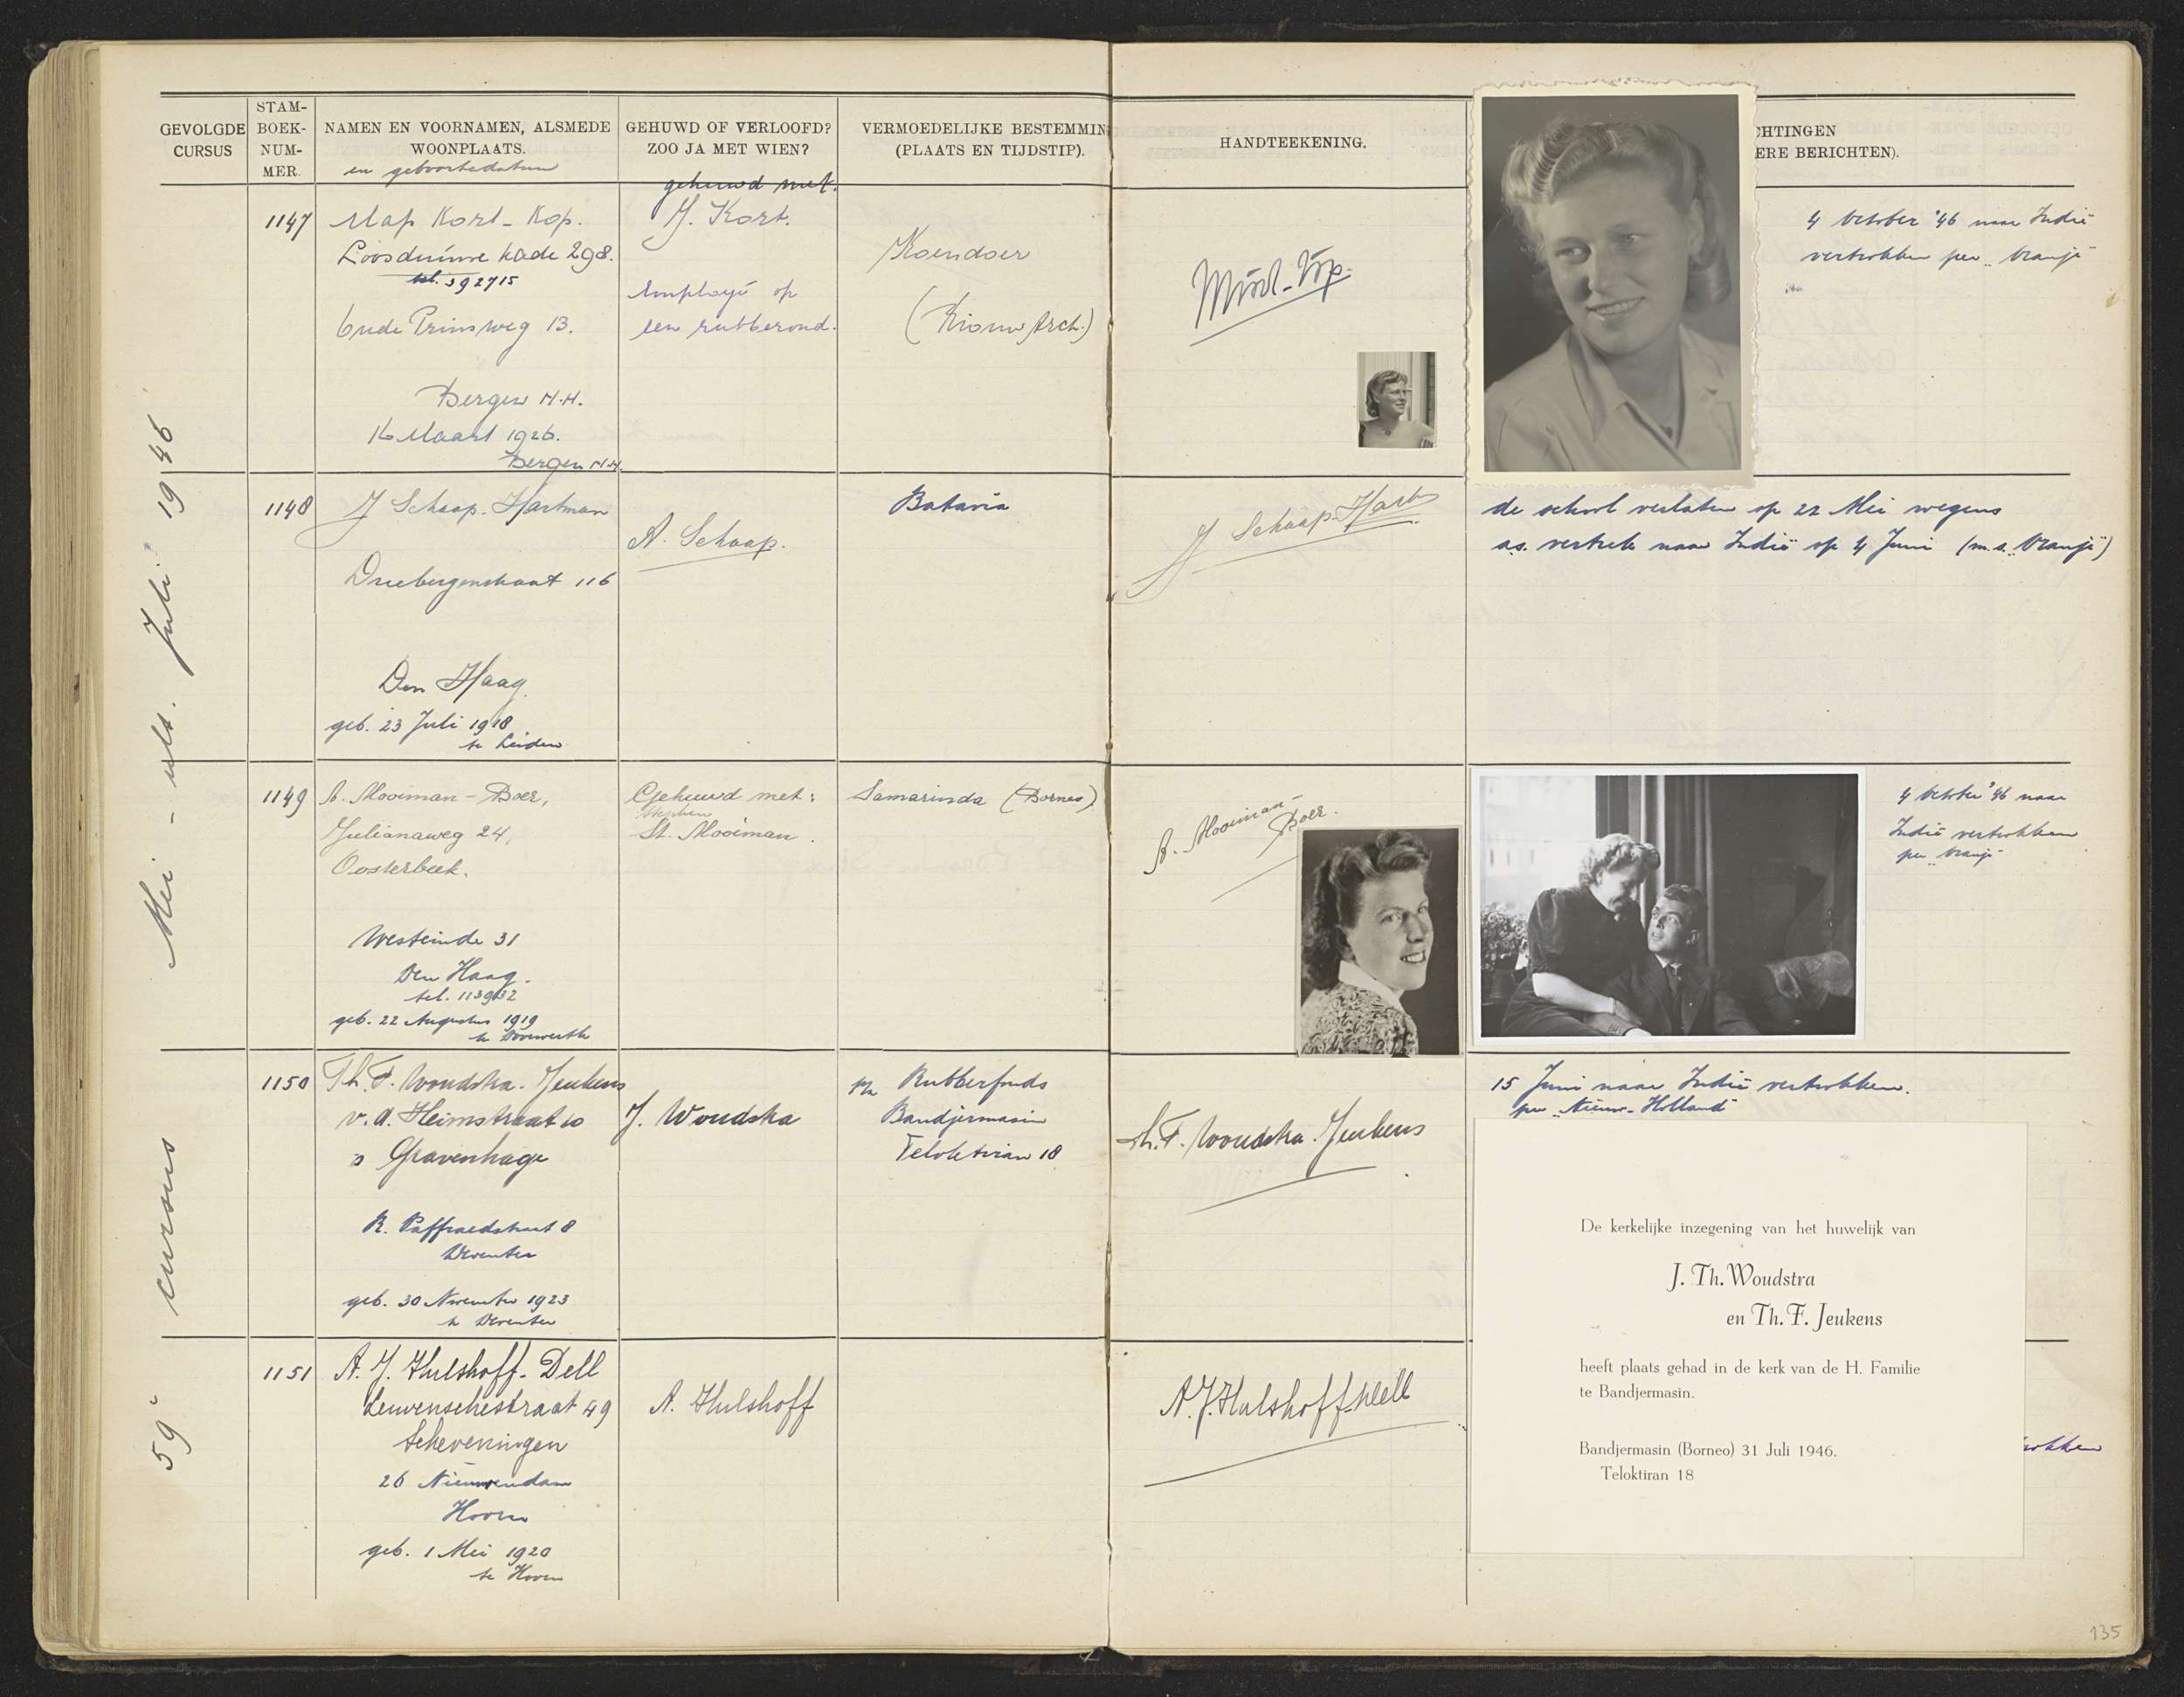 GEVOLGDE CURSUS
STAM-BOEK-NUM-MER.
NAMEN EN VOORNAMEN, ALSMEDE WOONPLAATS.
en geboortedatum
GEHUWD OF VERLOOFD? ZOO JA MET WIEN?
VERMOEDELIJKE BESTEMMIN
(PLAATS EN TIJDSTIP).
HANDTEEKENING.
CHTINGEN
ERE BERICHTEN).
59e cursus Mei - ult. Juli 1946
1147
Kort - Kop.
Loosduinse kade 298.
tel. 392715
Oude Prinsweg 13.
Bergen N.H.
16 Maart 1926.
Bergen N.H.
gehuwd met.
J. Kort.
employé op
een rubberond.
Koendoer
(Riouw Arch.)
4 October '46 naar Indië
vertrokken per "Oranje"
1148
J Schaap-Hartman
Driebergenstraat 116
Den Haag
geb. 23 Juli 1918
te Leiden
A. Schaap.
Batavia
J Schaap-Hart
de school verlaten op 22 Mei wegens
a.s. vertrek naar Indië op 4 Juni (m.s. "Oranje")
1149
A. Mooiman - Boer,
Julianaweg 24,
Oosterbeek.
Westeinde 31
Den Haag.
tel. 113932
geb. 22 Augustus 1919
te Doorwerth
Gehuwd met:
Stephen
St. Mooiman.
Samarinda (Borneo)
A. Mooiman-
Boer.
4 October '46 naar
Indië vertrokken
per "Oranje"
1150
Th. F. Woudstra-Jeukens
v. d. Heimstraat 10
's Gravenhage
R. Paffraedstraat 8
Deventer
geb. 30 November 1923
te Deventer
J. Woudstra
p/a Rubberfonds
Bandjermasin
Teloktiran 18
Th. F. Woudstra-Jeukens
15 Juni naar Indië vertrokken.
per "Nieuw-Holland"
De kerkelijke inzegening van het huwelijk van
J. Th. Woudstra
en Th. F. Jeukens
heeft plaats gehad in de kerk van de H. Familie
te Bandjermasin.
Bandjermasin (Borneo) 31 Juli 1946.
Teloktiran 18
1151
A. J. Hulshoff-Dell
Leuvenschestraat 49
Scheveningen
26 Nieuwendam
Hoorn
geb. 1 Mei 1920
te Hoorn
A. Hulshoff
A. J. Hulshoff-Dell
rokken
135